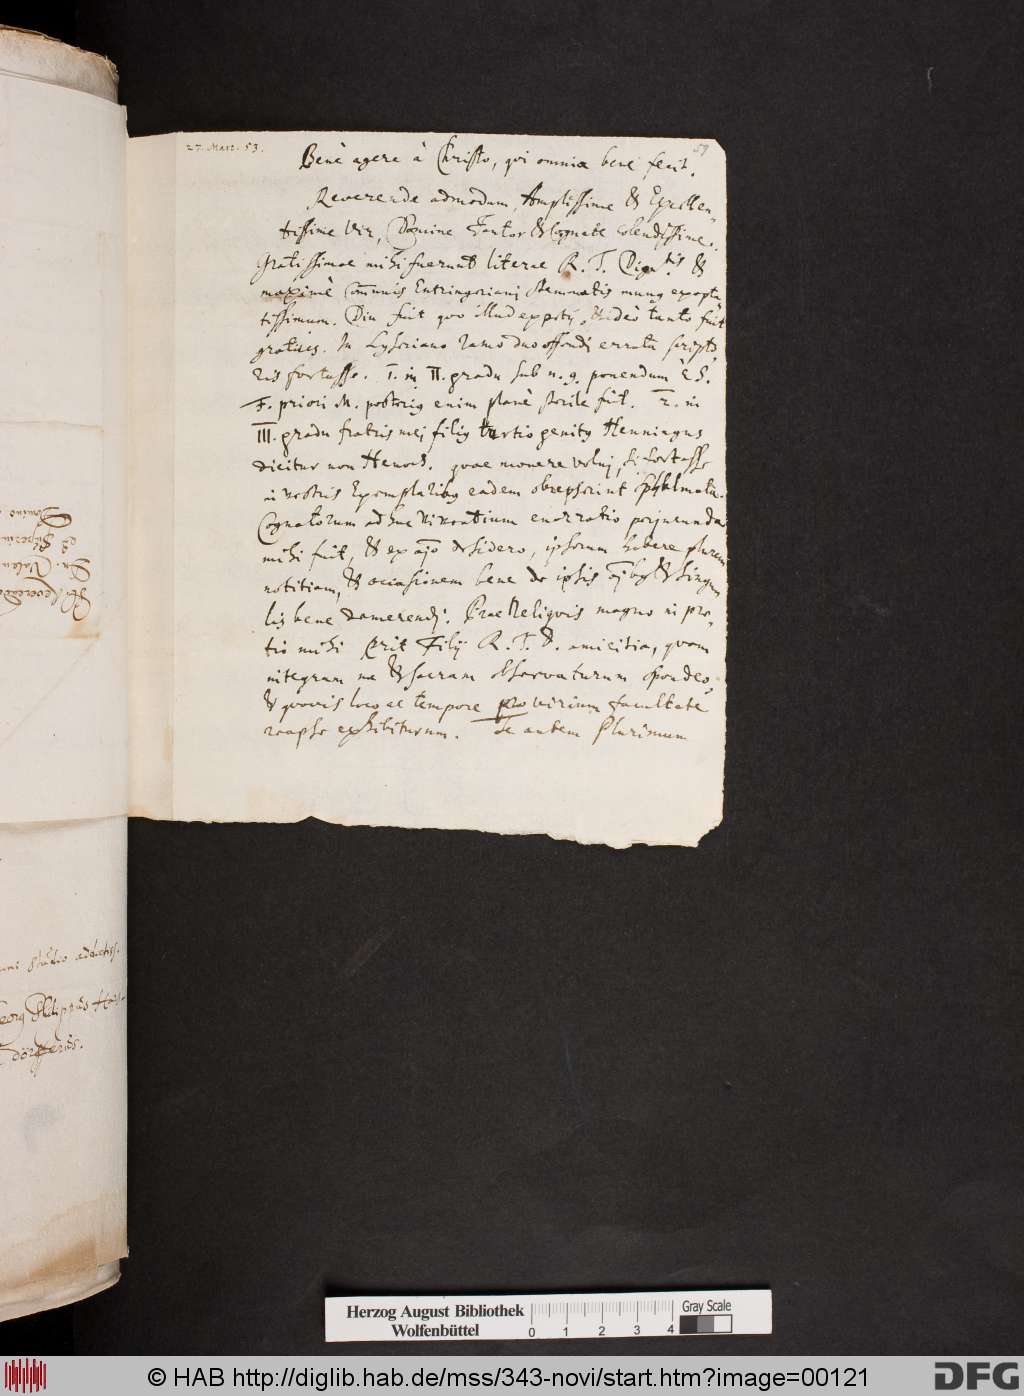 27. Mart. 53.
59
Benè agere à Christo, qvi omnia bene fecit.
Reverende admodum, Amplissime & Excellen-
tissime Vir, Domine Fautor & Cognate colendissime.
Gratissimae mihi fuerunt literae R. T. Dign.tis &
maximè com̄unis Entringeriani stemmatis munꝯ exopta-
tissimum. Diu fuit qvo illud expetij, & ideò tanto fuit
gratius. In Lyseriano ramo duo offendi errata scripto-
ris fortasse. I. in II. gradu sub n. 9. ponendum è S.
F. priori M. posteriꝯ enim planè sterile fuit. 2. in
III. gradu fratris mei filiꝯ tertio genitꝯ Henningus
dicitur non Henoch. qvae monere volui, si fortasse
in vestris Exemplaribꝯ eadem obrepserint sphalmata.
Cognatorum adhuc viventium enarratio perjucunda
mihi fuit, & ex desidero, ipsorum habere plenam
notitiam, & occasionem bene de ipsis & singu-
lis bene demerendi. Prae Reliqvis magno in pre-
tio mihi erit Filij R. T. D. amicitia, qvam
integram me & sacram observaturum spondeo,
& qvovis loco ac tempore pro virium facultate
reapse exhibiturum. Te autem plurimum
Domino
& Superin
Dn. Valen
Reverendo
studio addictiss.
Georg Philippus Har
dörfferus.
Herzog August Bibliothek
Wolfenbüttel
0 1 2 3 4
Gray Scale
© HAB http://diglib.hab.de/mss/343-novi/start.htm?image=00121
DFG